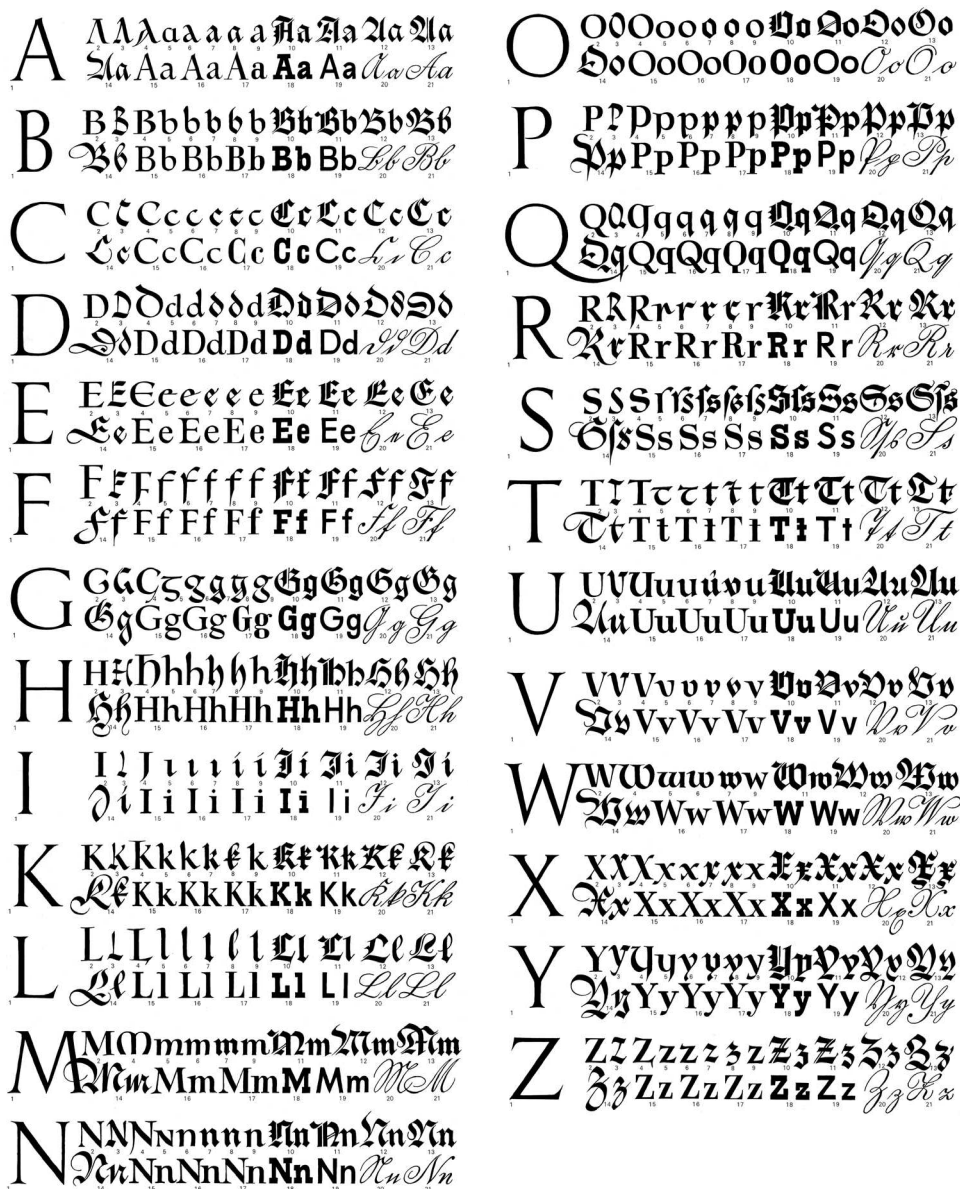 A A A A a a a a a Aa Aa Aa Aa
2 3 4 5 6 7 8 9 10 11 12 13
Aa Aa Aa Aa Aa Aa Aa Aa
1 14 15 16 17 18 19 20 21
B B B B b b b b b Bb Bb Bb Bb
2 3 4 5 6 7 8 9 10 11 12 13
Bb Bb Bb Bb Bb Bb Bb Bb
1 14 15 16 17 18 19 20 21
C C C C c c c c c Cc Cc Cc Cc
2 3 4 5 6 7 8 9 10 11 12 13
Cc Cc Cc Cc Cc Cc Cc Cc
1 14 15 16 17 18 19 20 21
D D D D d d d d d Dd Dd Dd Dd
2 3 4 5 6 7 8 9 10 11 12 13
Dd Dd Dd Dd Dd Dd Dd Dd
1 14 15 16 17 18 19 20 21
E E E E e e e e e Ee Ee Ee Ee
2 3 4 5 6 7 8 9 10 11 12 13
Ee Ee Ee Ee Ee Ee Ee Ee
1 14 15 16 17 18 19 20 21
F F F F f f f f f Ff Ff Ff Ff
2 3 4 5 6 7 8 9 10 11 12 13
Ff Ff Ff Ff Ff Ff Ff Ff
1 14 15 16 17 18 19 20 21
G G G G g g g g g Gg Gg Gg Gg
2 3 4 5 6 7 8 9 10 11 12 13
Gg Gg Gg Gg Gg Gg Gg Gg
1 14 15 16 17 18 19 20 21
H H H H h h h h h Hh Hh Hh Hh
2 3 4 5 6 7 8 9 10 11 12 13
Hh Hh Hh Hh Hh Hh Hh Hh
1 14 15 16 17 18 19 20 21
I I I I ı ı ı i i Ii Ii Ii Ii
2 3 4 5 6 7 8 9 10 11 12 13
Ii Ii Ii Ii Ii Ii Ii Ii
1 14 15 16 17 18 19 20 21
K K K K k k k k k Kk Kk Kk Kk
2 3 4 5 6 7 8 9 10 11 12 13
Kk Kk Kk Kk Kk Kk Kk Kk
1 14 15 16 17 18 19 20 21
L L L L l l l l l Ll Ll Ll Ll
2 3 4 5 6 7 8 9 10 11 12 13
Ll Ll Ll Ll Ll Ll Ll Ll
1 14 15 16 17 18 19 20 21
M M M m m m m Mm Mm Mm
Mm Mm Mm M Mm M M
N N N N n n n n n Nn Nn Nn Nn
2 3 4 5 6 7 8 9 10 11 12 13
Nn Nn Nn Nn Nn Nn Nn Nn
1 14 15 16 17 18 19 20 21
O O O O o o o o o Oo Oo Oo Oo
2 3 4 5 6 7 8 9 10 11 12 13
Oo Oo Oo Oo Oo Oo Oo Oo
1 14 15 16 17 18 19 20 21
P P P P p p p p p Pp Pp Pp Pp
2 3 4 5 6 7 8 9 10 11 12 13
Pp Pp Pp Pp Pp Pp Pp Pp
1 14 15 16 17 18 19 20 21
Q Q Q q q q q q q Qq Qq Qq Qq
2 3 4 5 6 7 8 9 10 11 12 13
Qq Qq Qq Qq Qq Qq Qq Qq
1 14 15 16 17 18 19 20 21
R R R R r r r r r Rr Rr Rr Rr
2 3 4 5 6 7 8 9 10 11 12 13
Rr Rr Rr Rr Rr Rr Rr Rr
1 14 15 16 17 18 19 20 21
S S S S ſ ſs ſs ſs ſs Sſs Ss Ss Sſs
2 3 4 5 6 7 8 9 10 11 12 13
Sſs Ss Ss Ss Ss Ss Sſs Ss
1 14 15 16 17 18 19 20 21
T T T T t t t t t Tt Tt Tt Tt
2 3 4 5 6 7 8 9 10 11 12 13
Tt Tt Tt Tt Tt Tt Tt Tt
1 14 15 16 17 18 19 20 21
U U V U u u u v u Uu Uu Uu Uu
2 3 4 5 6 7 8 9 10 11 12 13
Uu Uu Uu Uu Uu Uu Uu Uu
1 14 15 16 17 18 19 20 21
V V V V v v v v v Vv Vv Vv Vv
Vv Vv Vv Vv Vv Vv Vv Vv
1 14 15 16 17 18 19 20 21
W W W w w w w Ww Ww Ww
Ww Ww Ww W Ww Ww Ww
X X X X x x x x x Xx Xx Xx Xx
Xx Xx Xx Xx Xx Xx Xx Xx
1 14 15 16 17 18 19 20 21
Y Y Y Y y y y y y Yy Yy Yy Yy
Yy Yy Yy Yy Yy Yy Yy Yy
1 14 15 16 17 18 19 20 21
Z Z Z Z z z z z z Zz Zz Zz Zz
2 3 4 5 6 7 8 9 10 11 12 13
Zz Zz Zz Zz Zz Zz Zz Zz
1 14 15 16 17 18 19 20 21